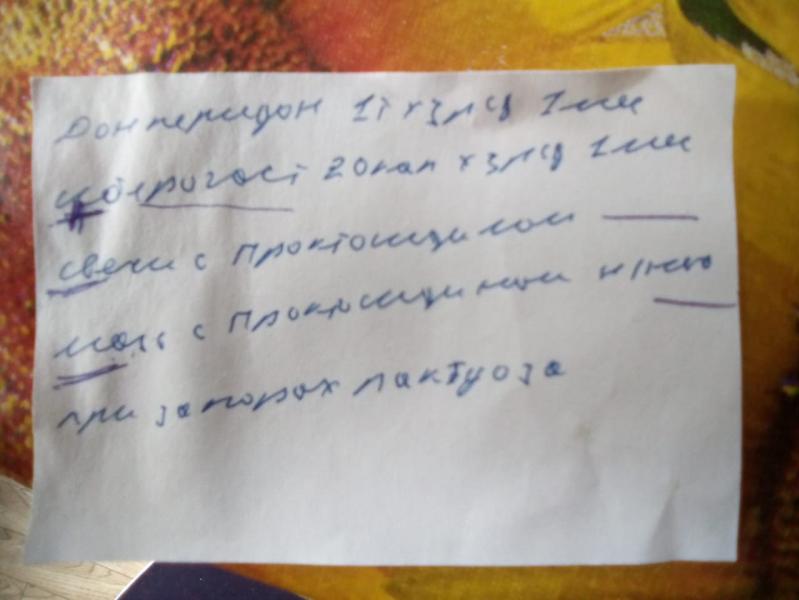 Домперидон 1т х 3 р/д 1 мес
иберогаст 20 кап х 3 р/д 1 мес
свечи с Проктозидилом
мазь с Проктозидилом н/ночь
при запорах лактуоза